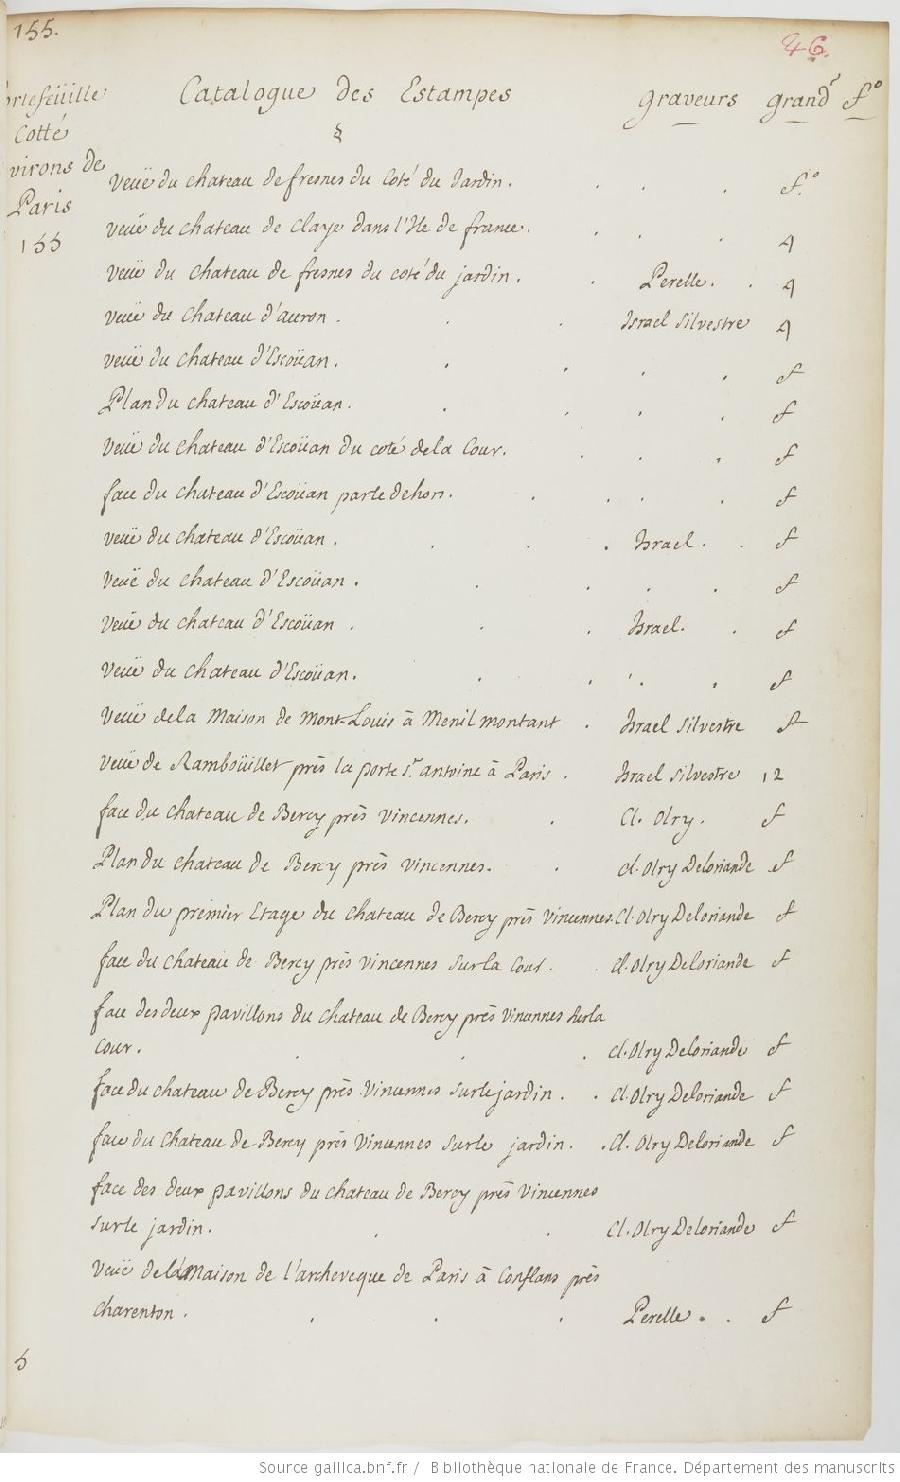 155.
46.
Catalogue des Estampes graveurs grand.r f.o
Cotté
Paris
155
Veuë du chateau de fresnes du coté du Jardin. f.o
veuë du chateau de Claye dans l'Ile de france. 4
Veuë du chateau de fresnes du coté du jardin. Perelle. 4
veuë du chateau d'auron. Israel Silvestre 4
veuë du chateau d'Escoüan. f
Plan du chateau d'Escoüan. f
Veuë du chateau d'Escoüan du coté dela Cour. f
face du chateau d'Escoüan par le dehors. f
veuë du chateau d'Escoüan. Israel. f
Veuë du chateau d'Escoüan. f
Veuë du chateau d'Escoüan. Israel. f
Veuë du chateau d'Escoüan. f
Veuë dela Maison de Mont-Louis à Menilmontant. Israel Silvestre f
Veuë de Ramboüillet près la porte S.t antoine à Paris. Israel Silvestre 12
face du chateau de Bercy près Vincennes. Cl. Olry. f
Plan du chateau de Bercy près Vincennes. cl. Olry Deloriande f
Plan du premier Etage du chateau de Bercy près Vincennes. Cl. Olry Deloriande f
face du chateau de Bercy près Vincennes sur la Cour. Cl. Olry Deloriande f
face des deux pavillons du chateau de Bercy près Vincennes sur la
cour. cl. Olry Deloriande f
face du chateau de Bercy près Vincennes sur le jardin. Cl. Olry Deloriande f
face du chateau de Bercy près Vincennes sur le jardin. Cl. Olry Deloriande f
face des deux pavillons du chateau de Bercy près Vincennes
sur le jardin. Cl. Olry Deloriande f
Veuë dela Maison de l'archeveque de Paris à Conflans près
charenton. Perelle. f
5
Source gallica.bnf.fr / Bibliothèque nationale de France. Département des manuscrits